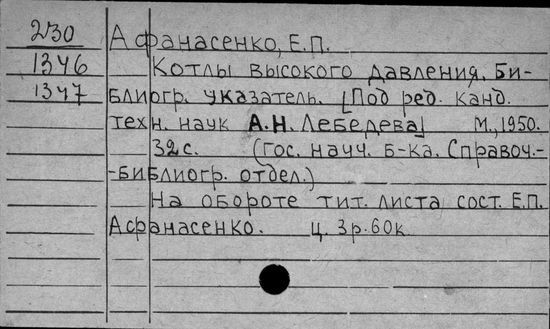 2/30
Афанасенко, Е.П.
1346
Котлы высокого давления. Би-
1347
блиогр. указатель. [Под ред. канд.
техн. наук А.Н. Лебедева] М., 1950.
32 с. (Гос. науч. б-ка. Справоч.-
-библиогр. отдел.)
На обороте тит. листа сост. Е.П.
Афанасенко. Ц. 3р. 60к.